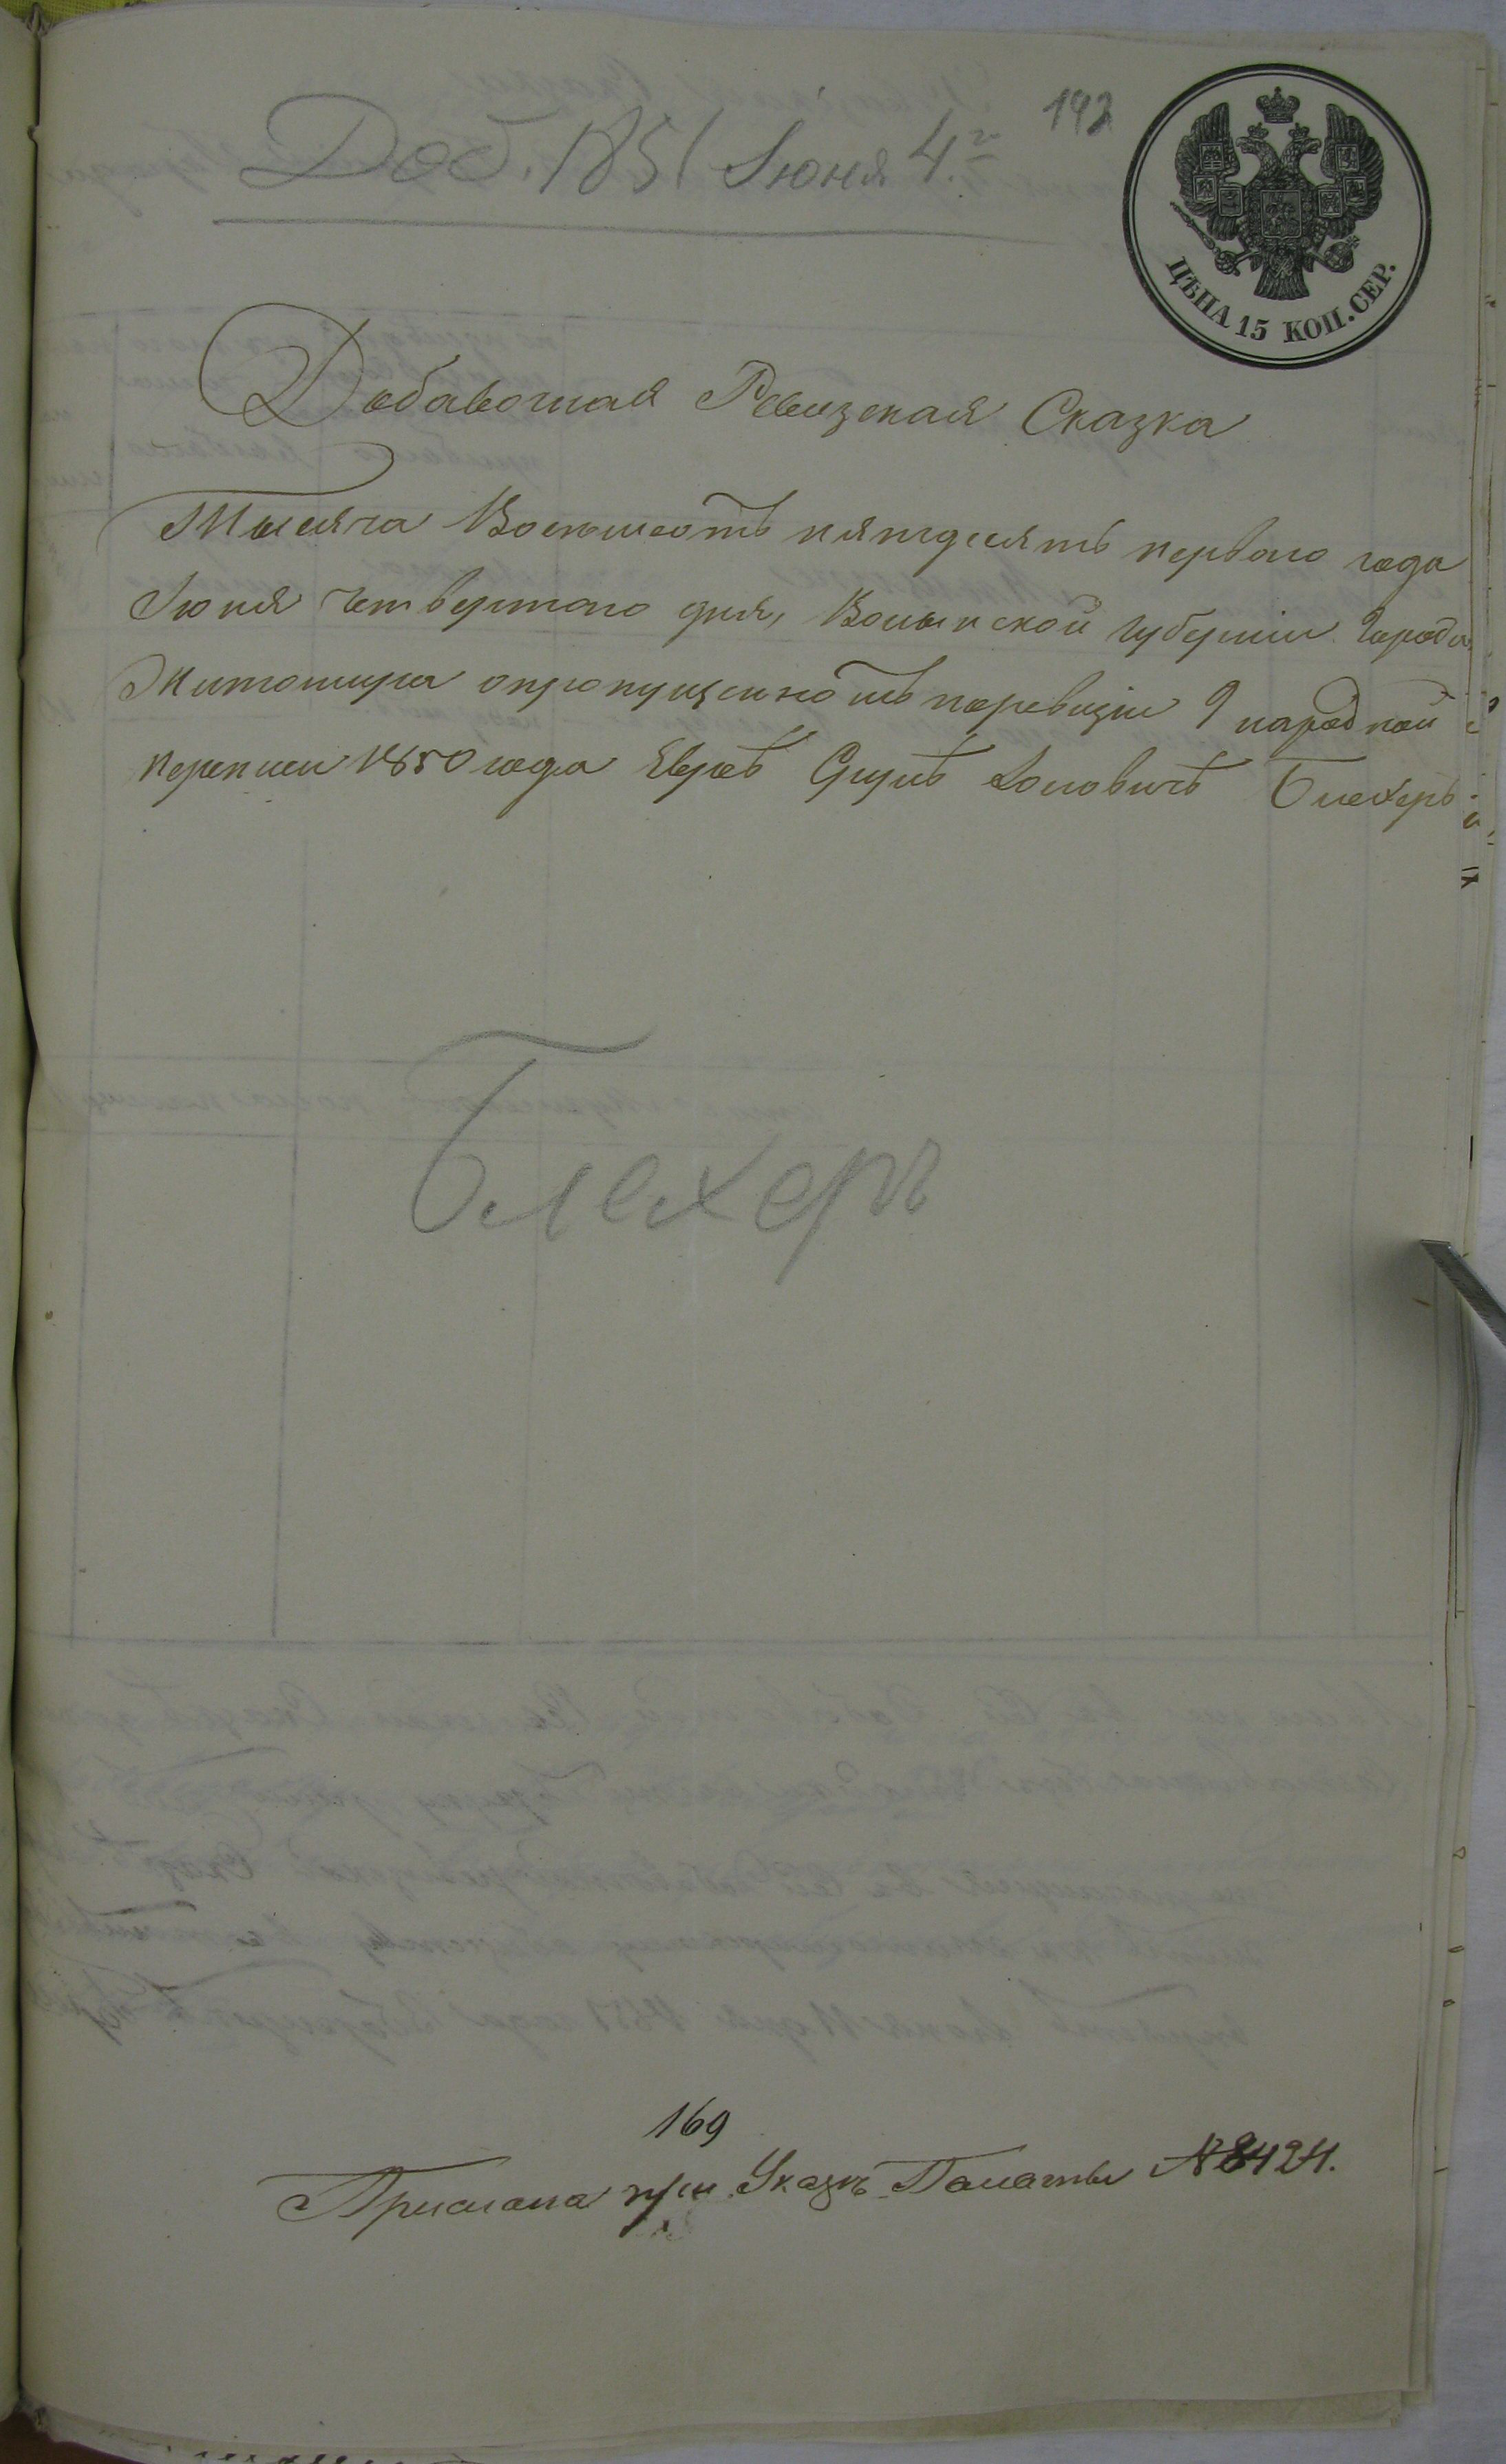 192
Доб. 1851 Іюня 4.го
ЦѢНА 15 КОП. СЕР.
Добавочная Ревизская Сказка
Тысяча Восемьсотъ пятдесятъ перваго года
Іюня четвертаго дня, Волынской губерніи города
Житомира опропущенномъ поревизіи 9 народной
переписи 1850 года Евреѣ Сруль Іосіовичъ Блехеръ
Блехеръ
169
Прислана при Указѣ Палаты № 8424.